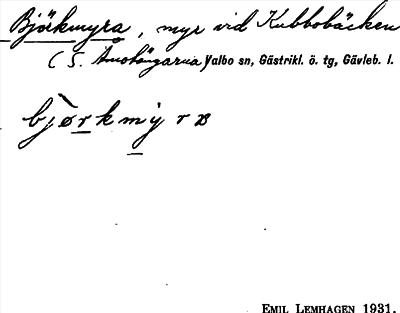 Björkmyra, myr vid Kubbobäcken
(S. Amotängarna) Valbo sn, Gästrikl. ö. tg, Gävleb. l.
bjørkmyrɒ
EMIL LEMHAGEN 1931.